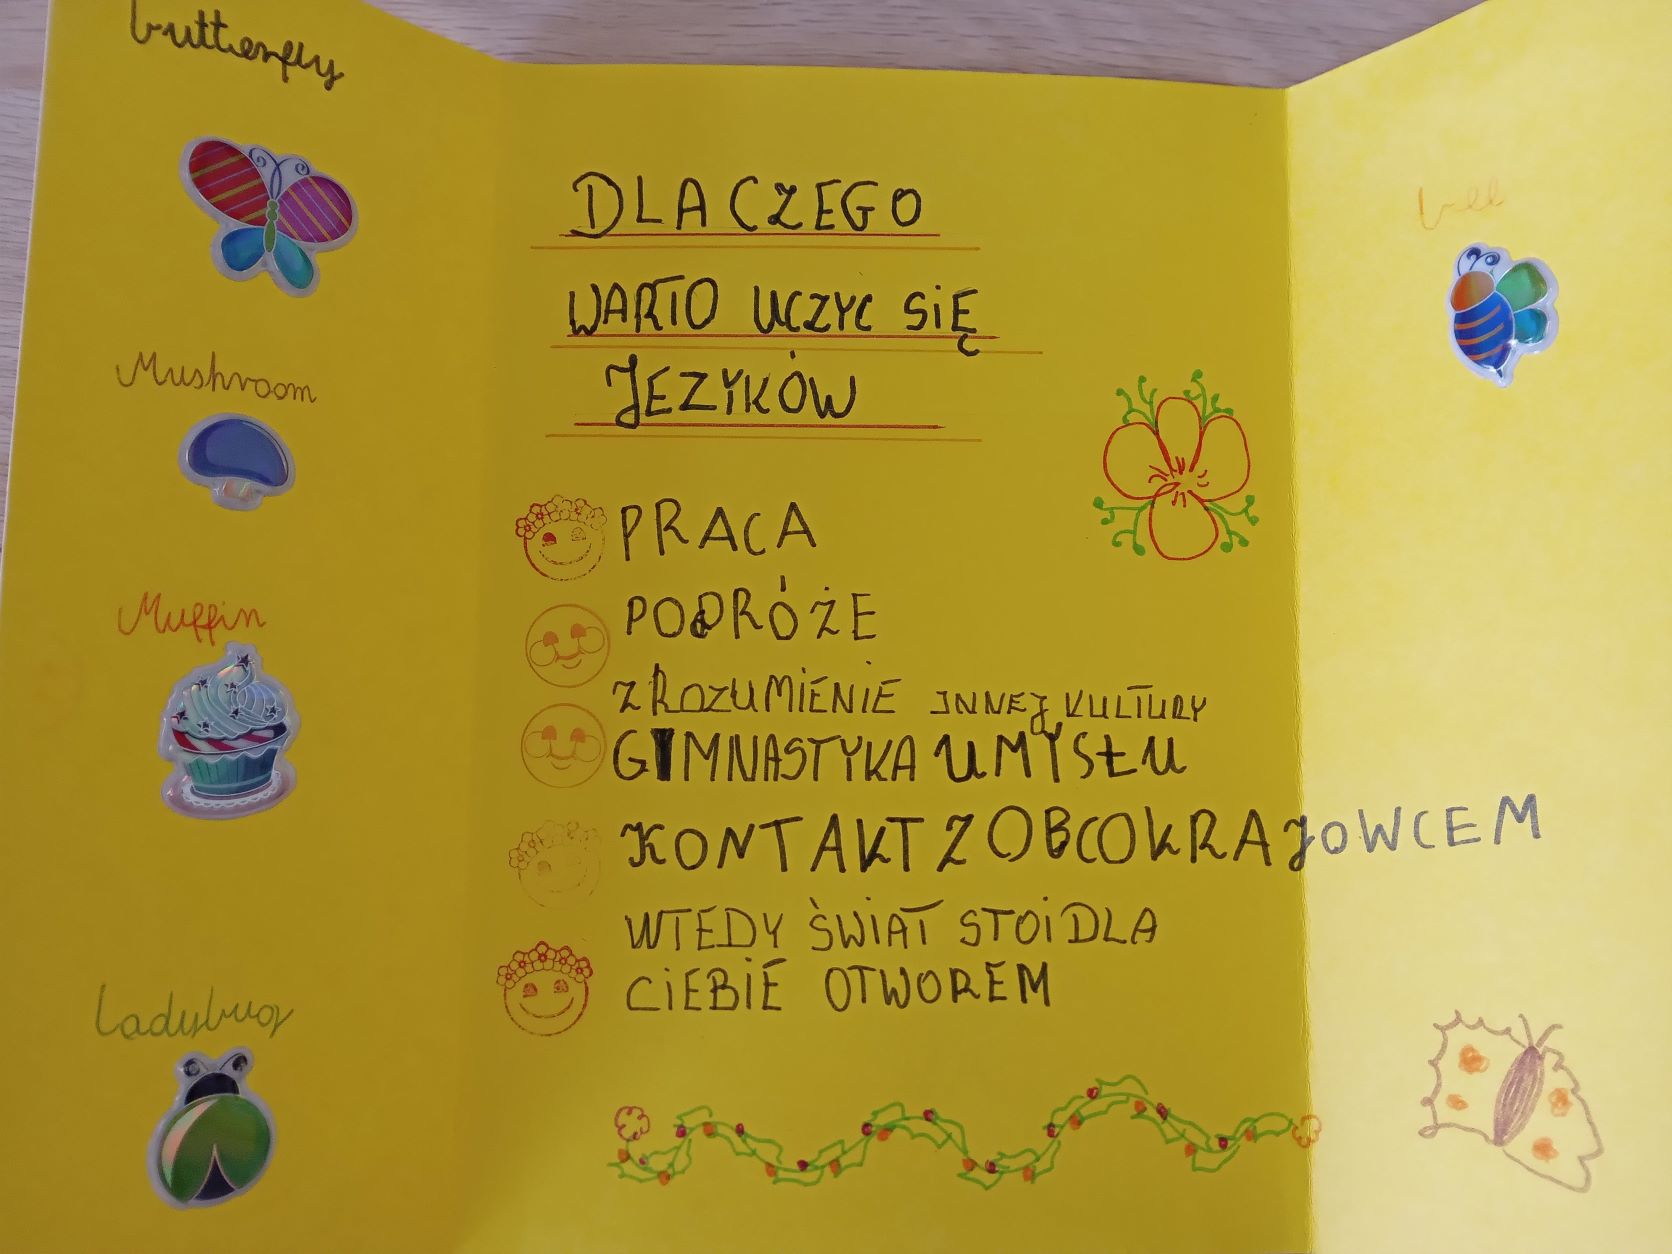 butterfly
Mushroom
Muffin
Ladybug
DLACZEGO
WARTO UCZYC SIĘ
JEZYKÓW
PRACA
PODRÓŻE
ZROZUMIENIE INNEJ KULTURY
GIMNASTYKA UMYSŁU
KONTAKT Z OBCOKRAJOWCEM
WTEDY ŚWIAT STOI DLA
CIEBIE OTWOREM
bee